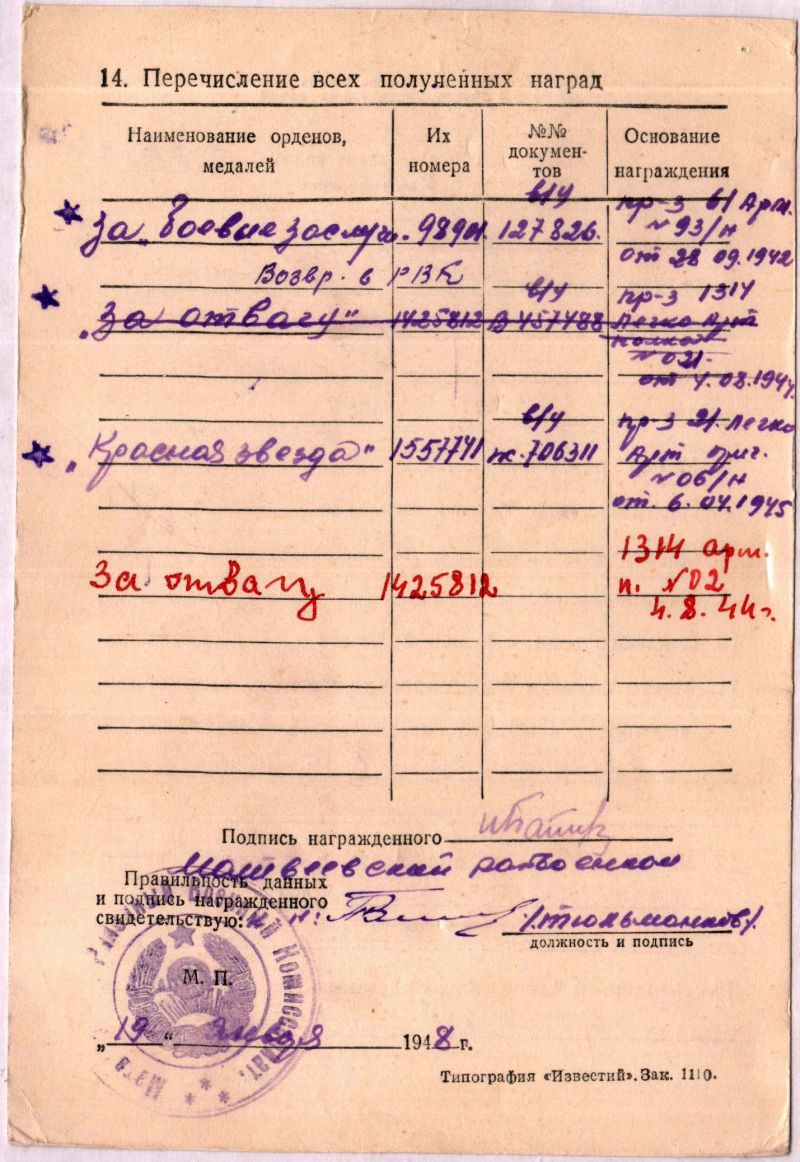 14. Перечисление всех полученных наград
Наименование орденов, медалей
Их номера
№№ документов
Основание награждения
в/у пр-з 61 Арт.
За „Боевые заслуги. 98901. 127826. №93/н
от 28 09.1942
Возвр. в РВК
в/у пр-з 1314
„За отвагу" 1425812 В 457488 Легко Арт
полка
№021.
от 4.08.1944.
в/у пр-з 21. Легко
„Красная звезда" 1557741 ж.706311 Арт бриг.
№06/н
от. 6.04.1945
1314 арт.
За отвагу 1425812 п. №02
4.8.44г.
Подпись награжденного
Матвеевский райвоенком
Правильность данных
и подпись награжденного
свидетельствую:
/Тюльманков/.
должность и подпись
Районный Военный Комиссариат.
М. П.
„19" января 1948 г.
Типография «Известий». Зак. 1110.